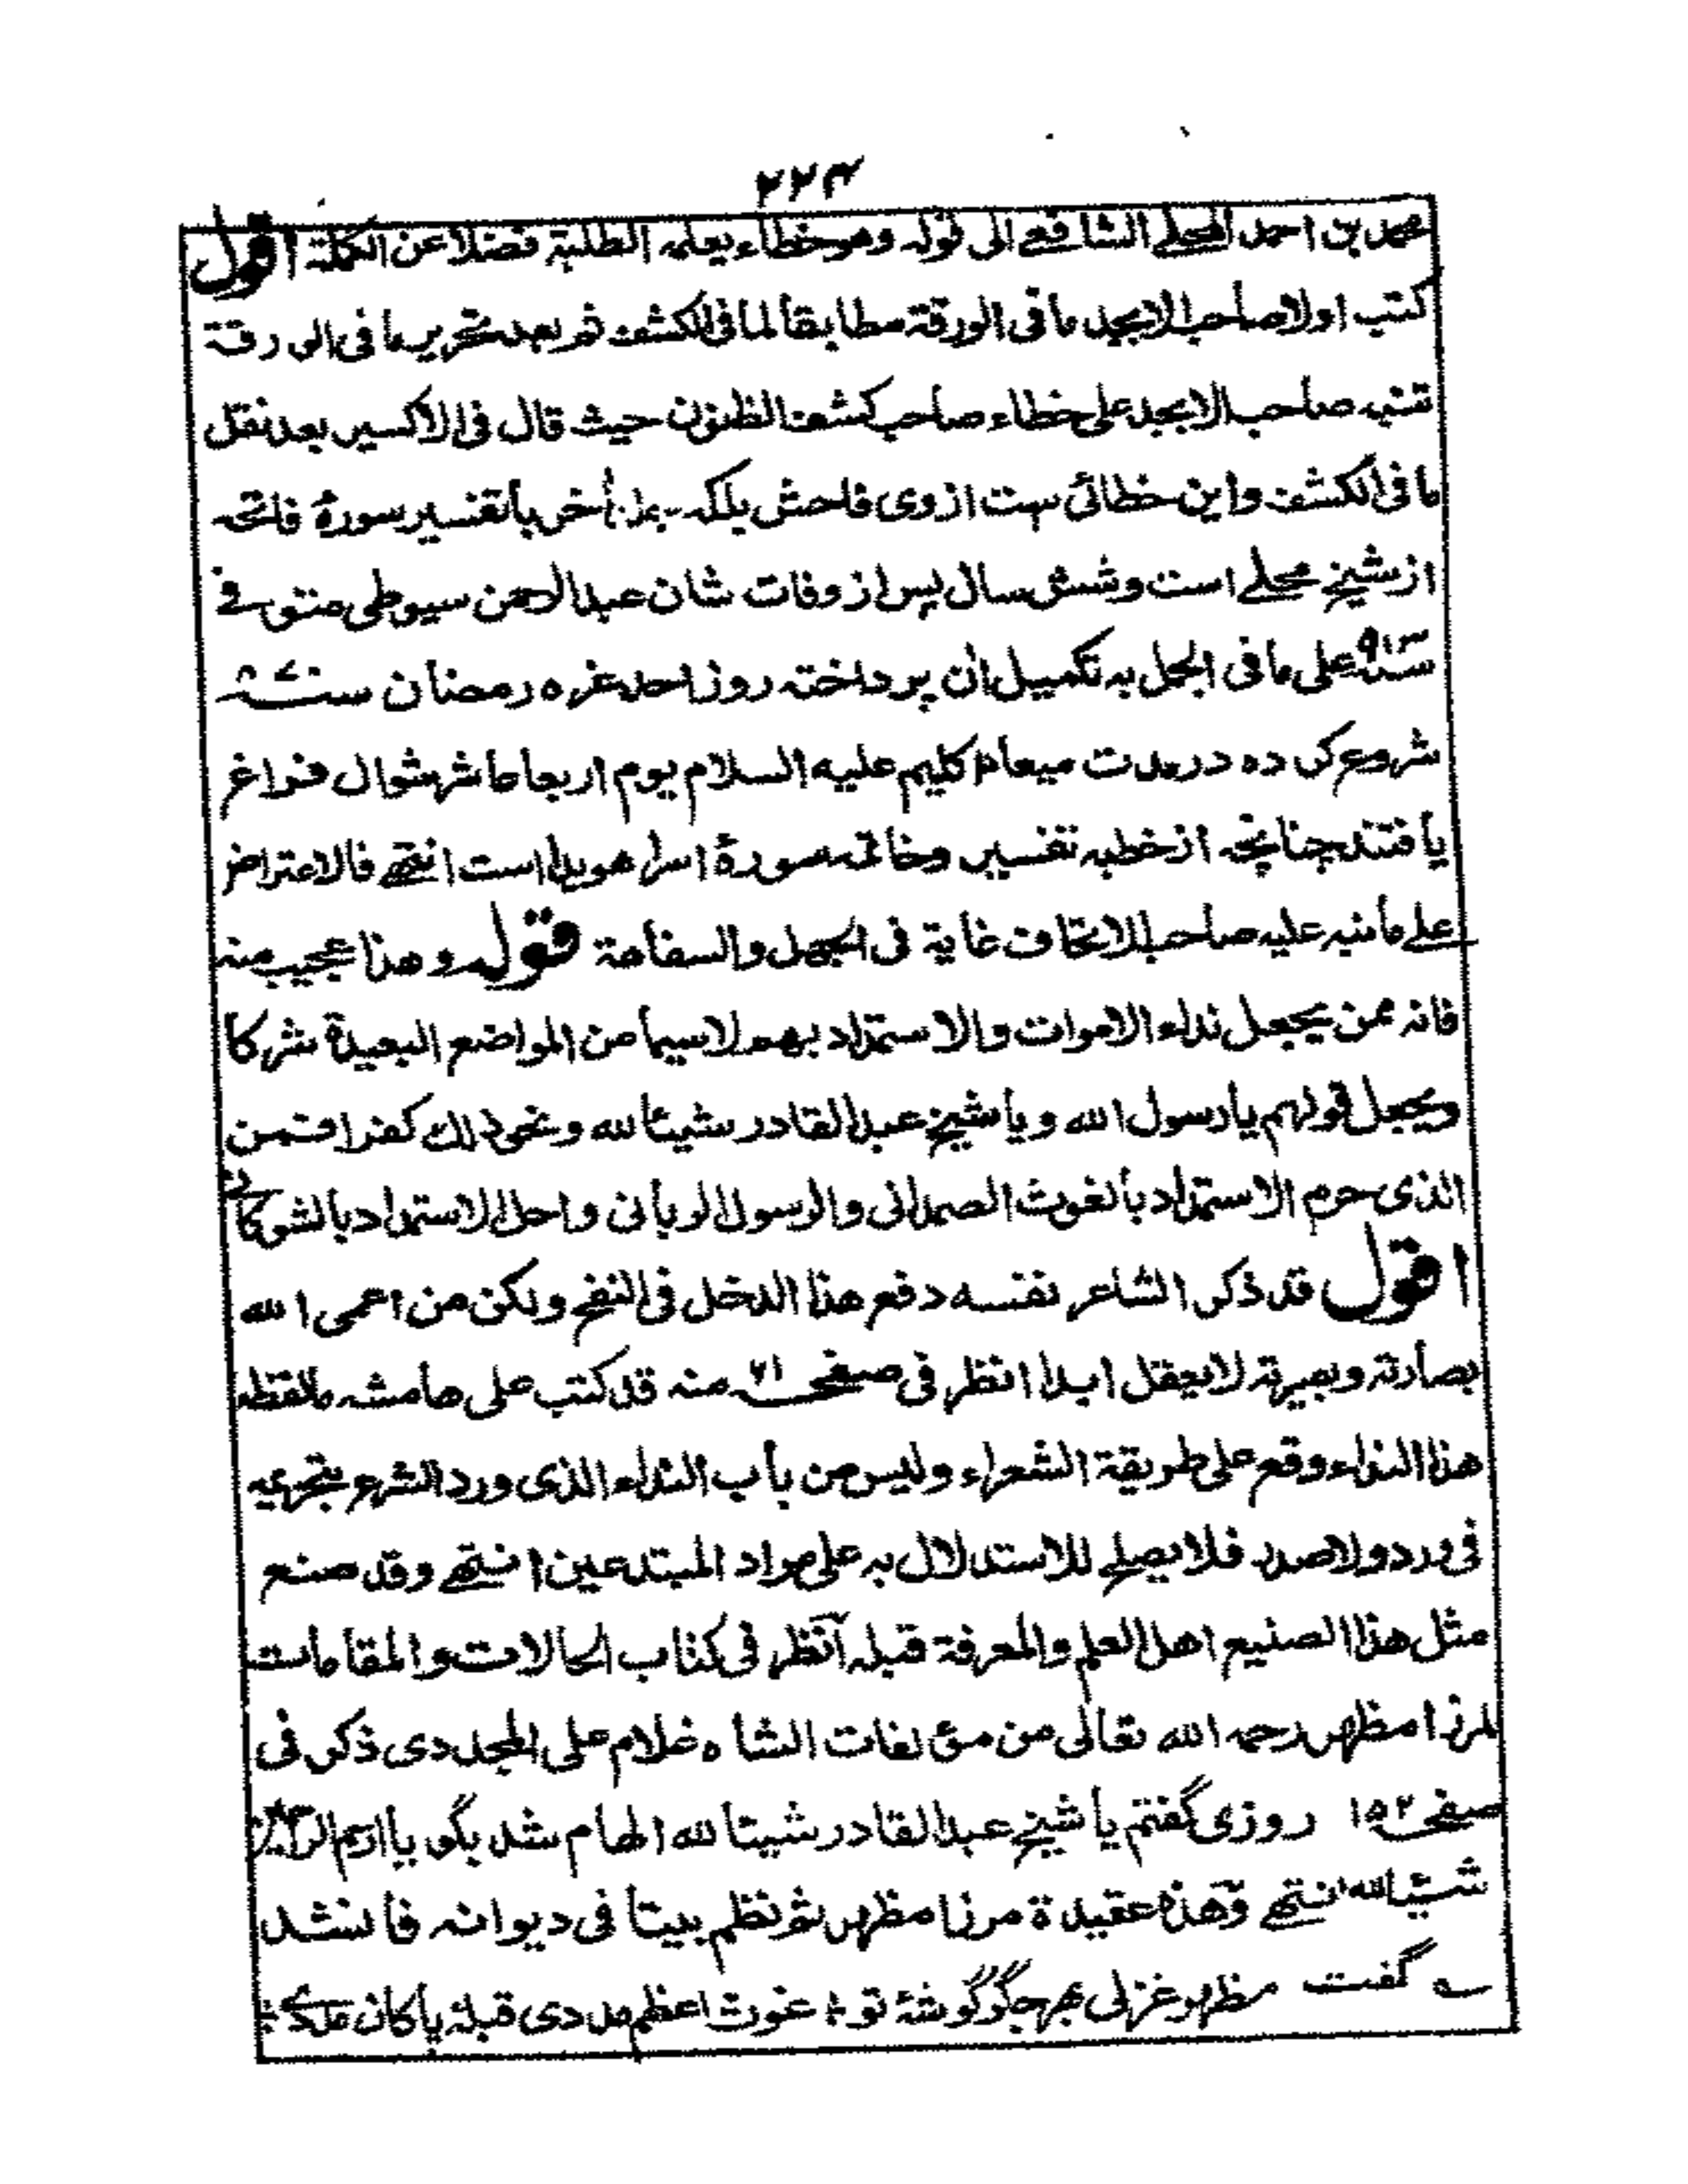 ۲۲۴
محمد بن احمد المحلے الشافعے الی قولہ وھو خطاء یعلمہ الطلبۃ فضلا عن الکملۃ اقول
کتب اولا صاحب الابجد ما فی الورقۃ مطابقا لما فی الکشف ثم بعد تحریر ما فی الورقۃ
تنبہ صاحب الابجد علی خطاء صاحب کشف الظنون حیث قال فی الاکسیر بعد نقل
ما فی الکشف و این خطائی ست از وی فاحش بلکہ آخر با تفسیر سورۂ فاتحہ
از شیخ محلے است و شش سال پس از وفات شان عبد الرحمن سیوطی متوفے
علی ما فی الجمل بہ تکمیل ان پرداختہ روز احد غرہ رمضان
شروع کردہ در مدت میعاد کلیم علیہ السلام یوم اربعا عاشر شوال فراغ
یافتند چنانچہ از خطبہ تفسیر و خاتمہ سورۂ اسرا ھویدا است انتھے فالاعتراض
علے ما نبہ علیہ صاحب الاتحاف غایۃ فی الجھل والسفاھۃ قولہ وھذا عجیب منہ
فانہ ممن یجعل نداء الاموات والاستمداد بھم لاسیما من المواضع البعیدۃ شرکا
ویجعل قولہم یا رسول اللہ و یا شیخ عبد القادر شیئا للہ ونحو ذلک کفرا فمن
الذی حرم الاستمداد بالغوث الصمدانی والرسول الربانی واحل الاستمداد بالشوکانی
اقول قد ذکر الشاعر نفسہ دفع ھذا الدخل فی النفح ولکن من اعمی اللہ
بصارتہ وبصیرتہ لا یعقل ابدا انظر فی صفحہ ۷۱ منہ قد کتب علی ھامشہ ما لفظہ
ھذا النداء وقع علی طریقۃ الشعراء ولیس من باب النداء الذی ورد الشرع بتحریمہ
فی ورد ولا صدر فلا یصلح للاستدلال بہ علی مراد المبتدعین انتھے وقد صنع
مثل ھذا الصنیع اھل العلم والمعرفۃ قبلہ آنظر فی کتاب الحالات والمقامات
لمرزا مظھر رحمہ اللہ تعالی من مؤلفات الشاہ غلام علی المجددی ذکر فی
صفحہ ۱۵۲ روزی گفتم یا شیخ عبد القادر شیئا للہ الھام شد بگو یا ارحم الراحمین
شیئا للہ انتھے وھذہ عقیدۃ مرزا مظھر ثم نظم بیتا فی دیوانہ فانشد
؎ گفت مظہر غزلی بھر جگرگوشۂ تو ؛ غوث اعظم مددی قبلۂ پاکان مددے ؛